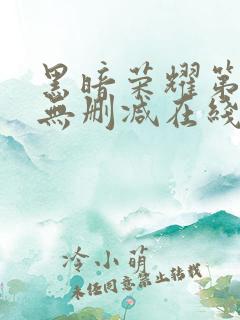 黑暗荣耀第
無删减在綫
冷小萌
未经同意禁止转载